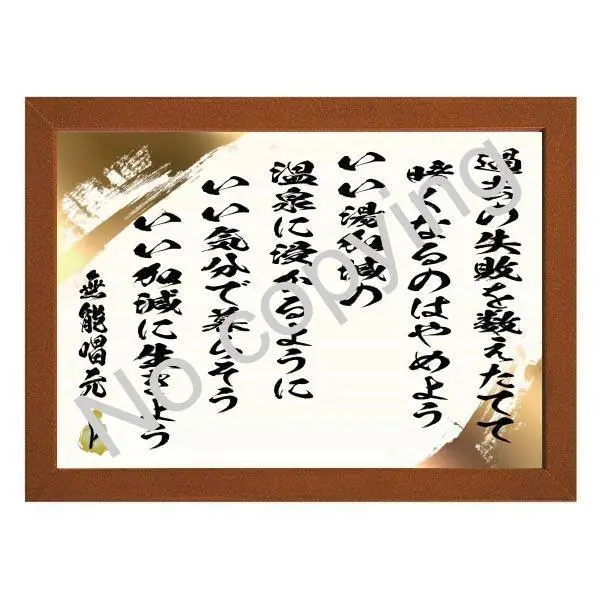 過去の失敗を数えたてて
暗くなるのはやめよう
いい湯加減の
温泉に浸かるように
いい気分で暮らそう
いい加減に生きよう
無能唱元
No copying